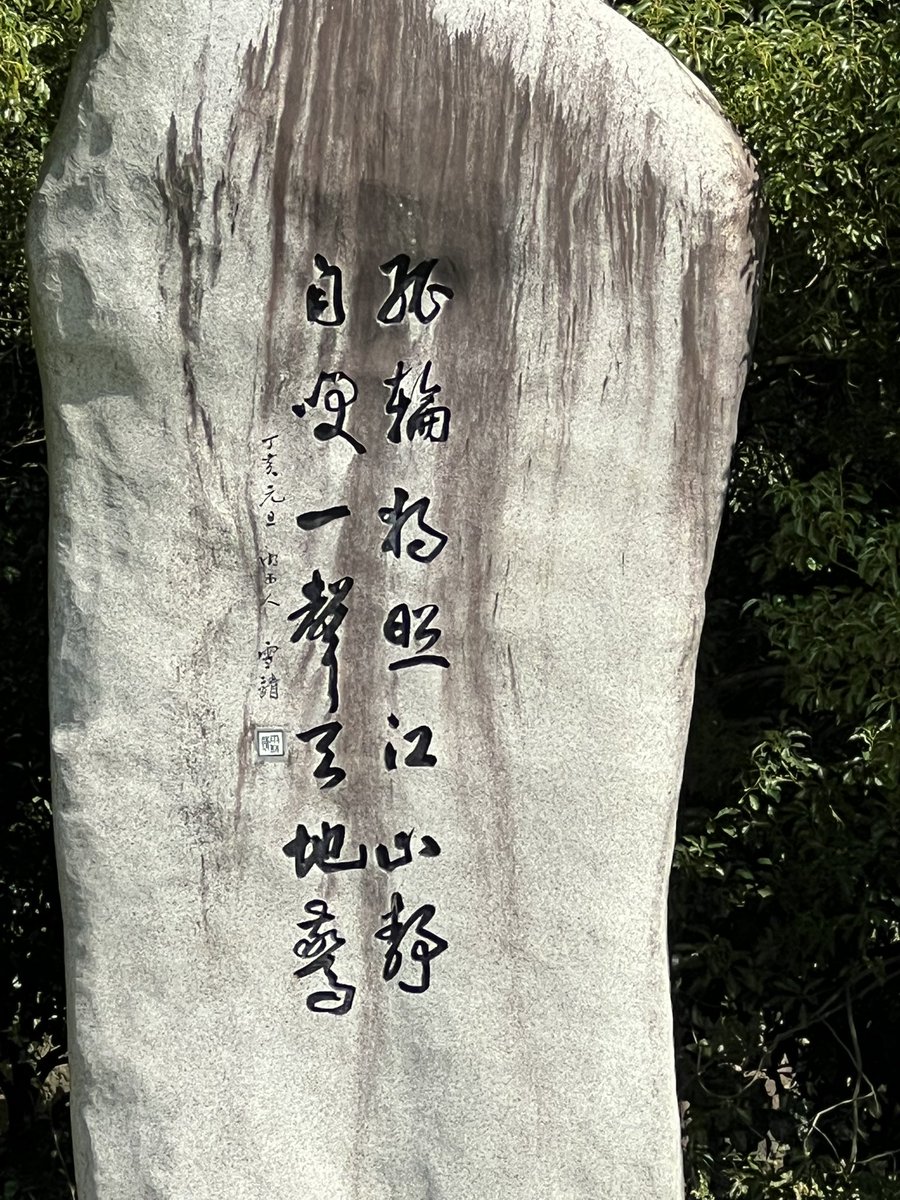 孤輪独照江山静
自笑一聲天地驚
丁亥元旦 人 雪靖